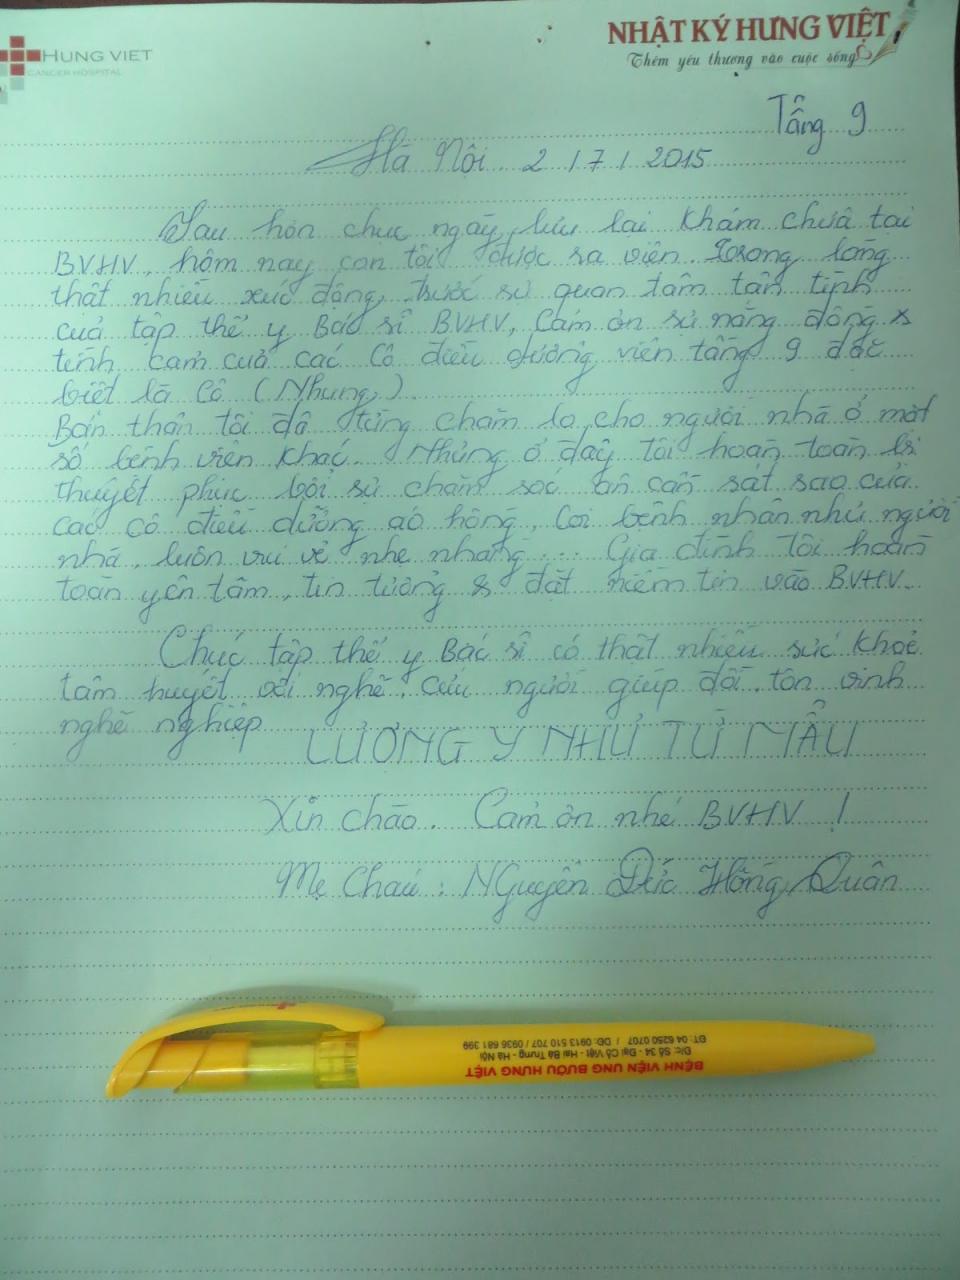 HUNG VIET
CANCER HOSPITAL
NHẬT KÝ HƯNG VIỆT
Thêm yêu thương vào cuộc sống
Tầng 9
Hà Nội. 2 / 7 / 2015
Sau hơn chục ngày lưu lại khám chữa tại
BVHV, hôm nay con tôi được ra viện. Trong lòng
thật nhiều xúc động, trước sự quan tâm tận tình
của tập thể y Bác sĩ BVHV, Cảm ơn sự năng động &
tình cảm của các cô điều dưỡng viên tầng 9 đặc
biệt là Cô (Nhung)
Bản thân tôi đã từng chăm lo cho người nhà ở một
số bệnh viện khác. Nhưng ở đây tôi hoàn toàn bị
thuyết phục bởi sự chăm sóc ân cần sát sao của
các cô điều dưỡng áo hồng, coi bệnh nhân như người
nhà, luôn vui vẻ nhẹ nhàng ... Gia đình tôi hoàn
toàn yên tâm, tin tưởng & đặt niềm tin vào BVHV.
Chúc tập thể y Bác sĩ có thật nhiều sức khoẻ
tâm huyết với nghề, cứu người giúp đời, tôn vinh
nghề nghiệp
LƯƠNG Y NHƯ TỪ MẪU
Xin chào. Cảm ơn nhé BVHV !
Mẹ cháu : Nguyễn Đức Hồng Quân
BỆNH VIỆN UNG BƯỚU HƯNG VIỆT
Đ/c: Số 34 - Đại Cồ Việt - Hai Bà Trưng - Hà Nội
ĐT: 04 6250 0707 / DĐ: 0913 510 707 / 0936 681 399